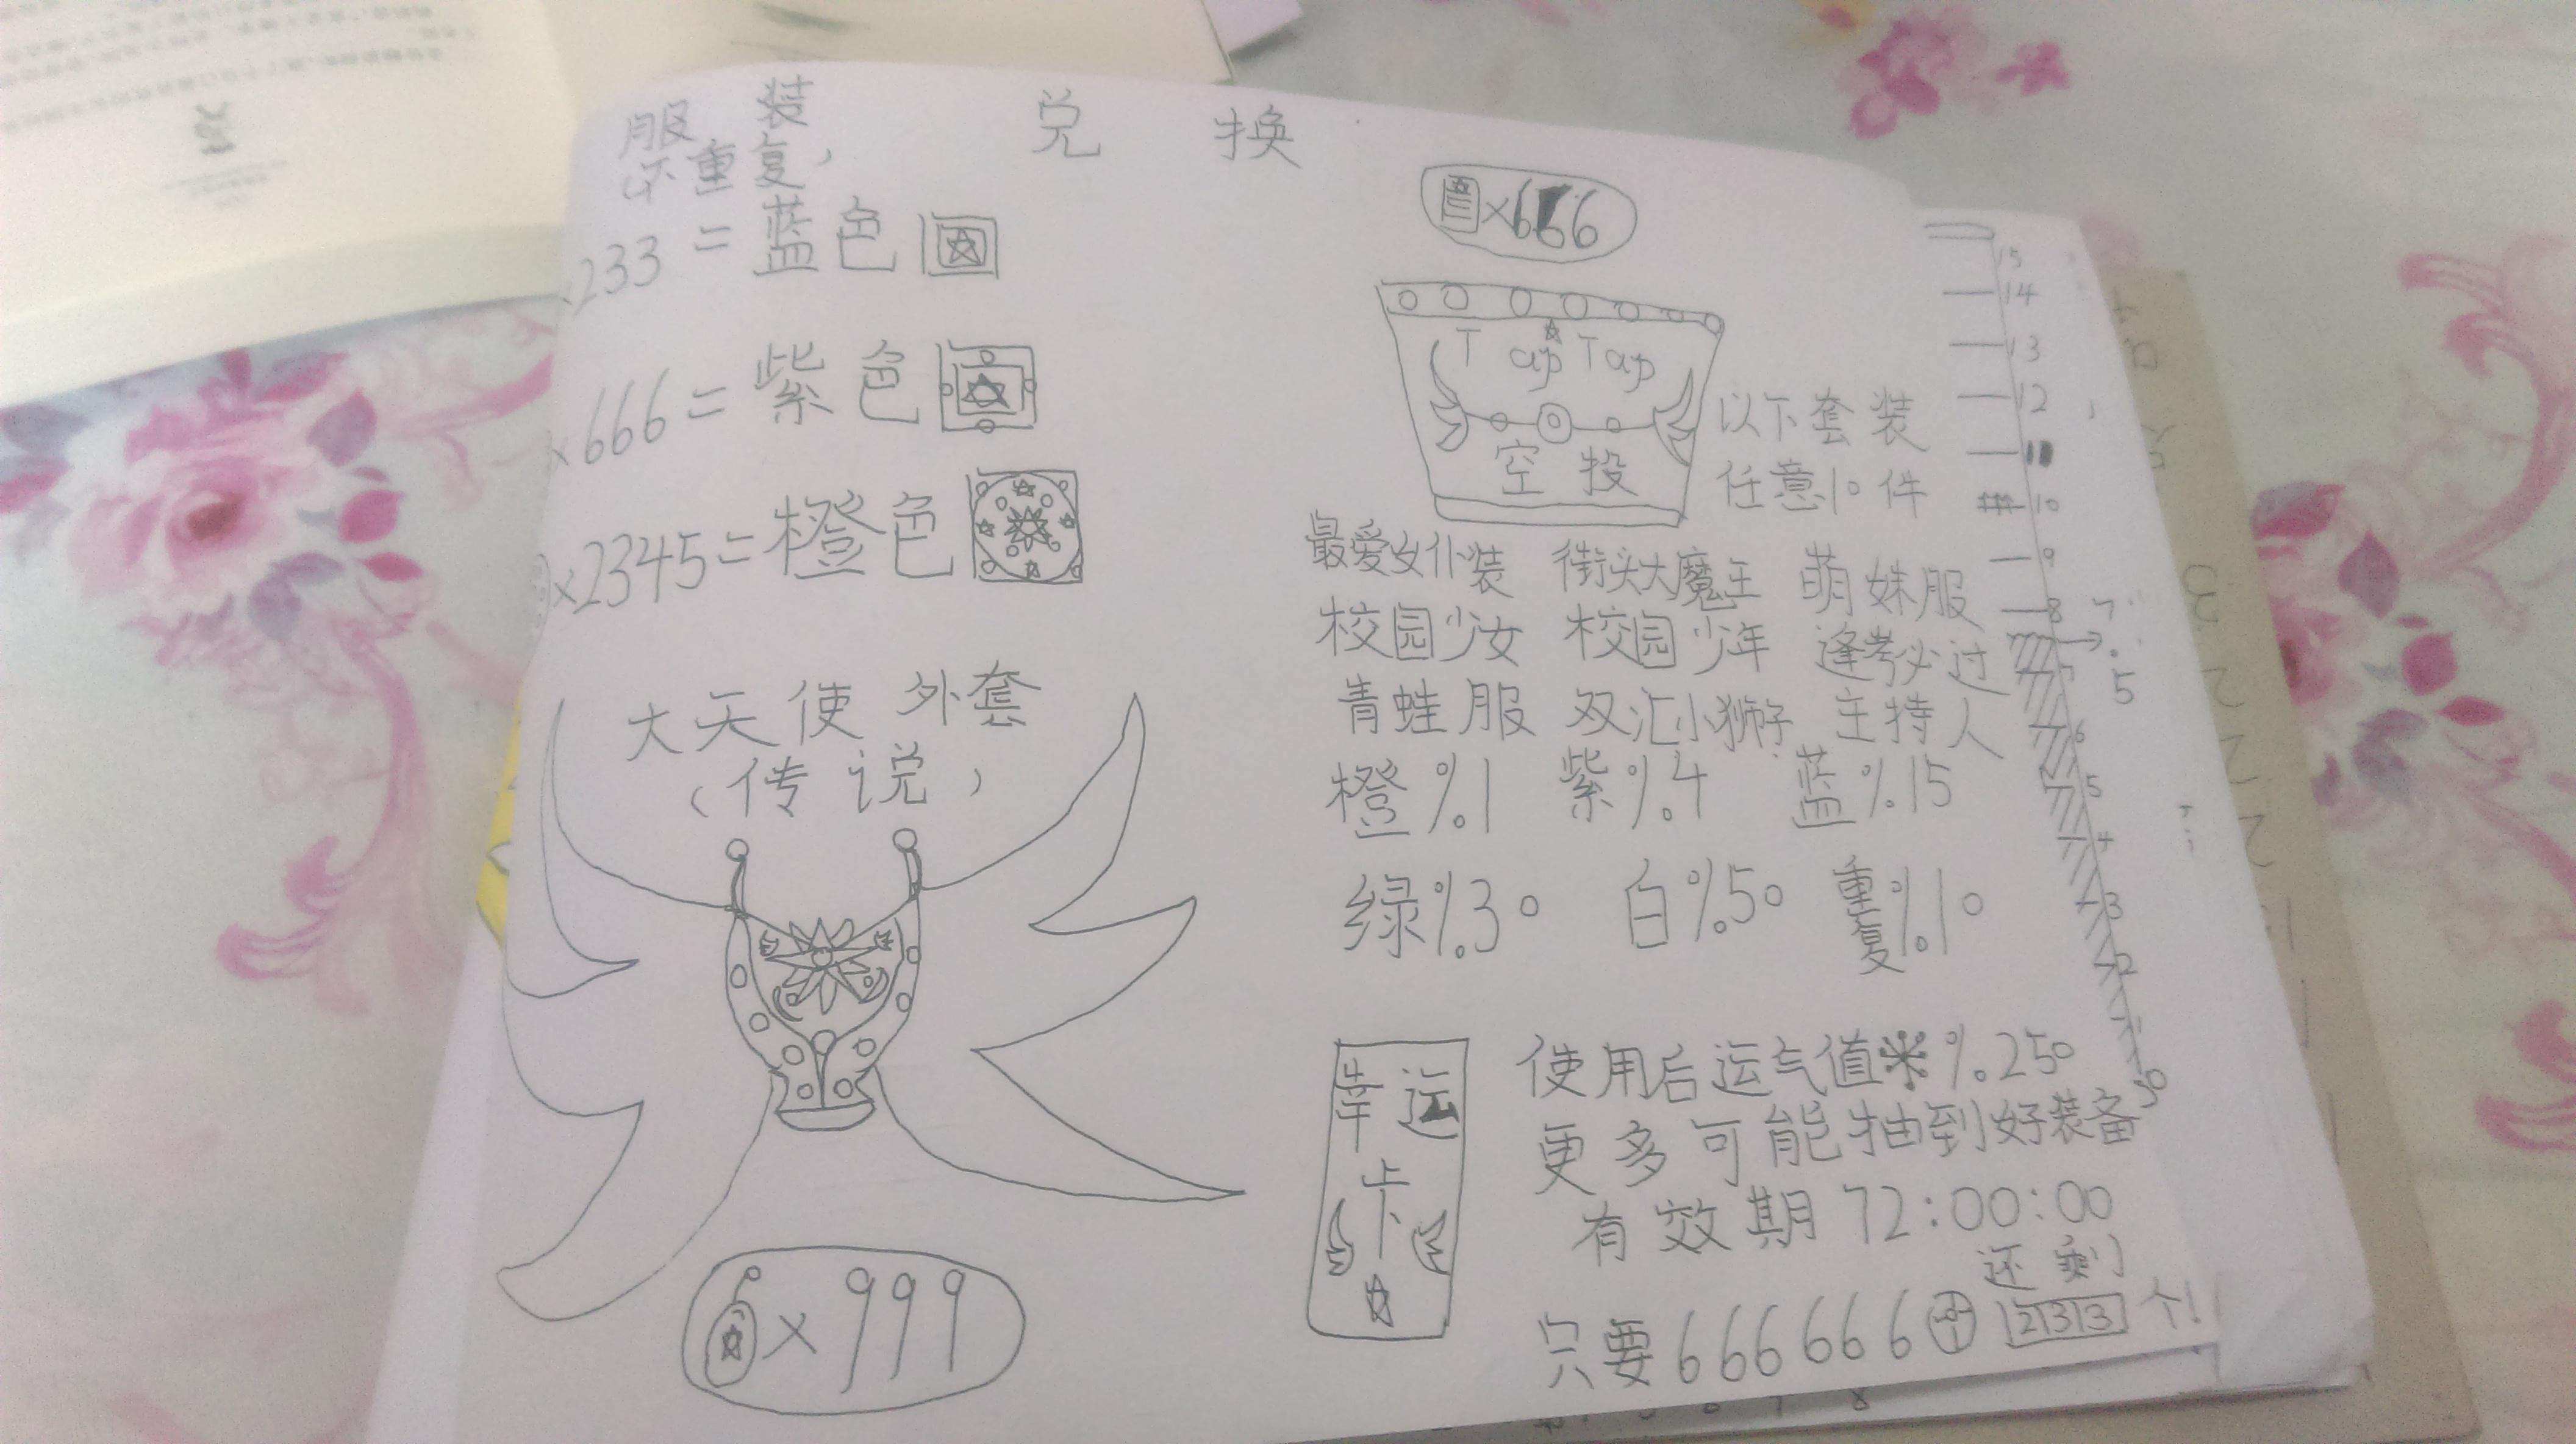 服装 兑换
(不重复)
×233=蓝色
×666=紫色
×2345=橙色
大天使外套
(传说)
×999
×666
Tap Tap
空投
以下套装
任意10件
最爱女仆装 街头大魔王 萌妹服
校园少女 校园少年 逢考必过
青蛙服 双汇小狮子 主持人
橙%1 紫%4 蓝%15
绿%30 白%50 重复%10
幸运
卡
使用后运气值※%250
更多可能抽到好装备
有效期72:00:00
还剩
只要666666 233个!
15
14
13
12
11
10
9
8
7.5
7
6
5
4
3
2
1
0